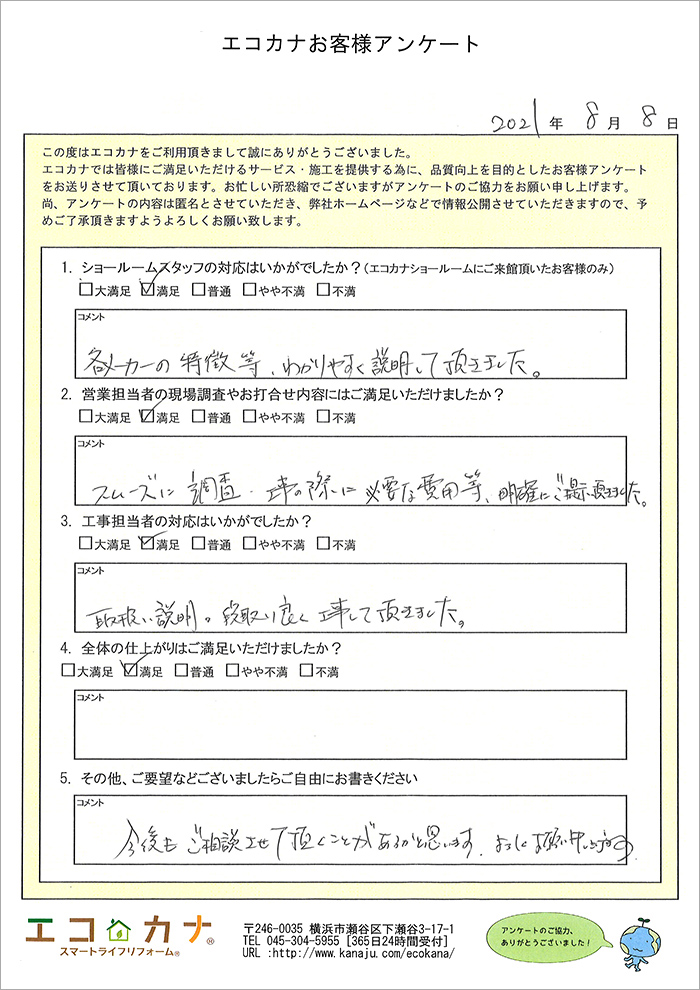 エコカナお客様アンケート
2021年 8月 8日
この度はエコカナをご利用頂きまして誠にありがとうございました。
エコカナでは皆様にご満足いただけるサービス・施工を提供する為に、品質向上を目的としたお客様アンケート
をお送りさせて頂いております。お忙しい所恐縮でございますがアンケートのご協力をお願い申し上げます。
尚、アンケートの内容は匿名とさせていただき、弊社ホームページなどで情報公開させていただきますので、予
めご了承頂きますようよろしくお願い致します。
1. ショールームスタッフの対応はいかがでしたか？(エコカナショールームにご来館頂いたお客様のみ)
□大満足 ☑満足 □普通 □やや不満 □不満
コメント
各メーカーの特徴等、わかりやすく説明して頂きました。
2. 営業担当者の現場調査やお打合せ内容にはご満足いただけましたか？
□大満足 ☑満足 □普通 □やや不満 □不満
コメント
スムーズに調査・工事の際に必要な費用等、明確にご提示頂きました。
3. 工事担当者の対応はいかがでしたか？
□大満足 ☑満足 □普通 □やや不満 □不満
コメント
取扱い説明。段取り良く工事して頂きました。
4. 全体の仕上がりはご満足いただけましたか？
□大満足 ☑満足 □普通 □やや不満 □不満
コメント
5. その他、ご要望などございましたらご自由にお書きください
コメント
今後もご相談させて頂くことがあるかと思います。よろしくお願い申し上げます。
エコカナ®
スマートライフリフォーム®
〒246-0035 横浜市瀬谷区下瀬谷3-17-1
TEL 045-304-5955 [365日24時間受付]
URL :http://www.kanaju.com/ecokana/
アンケートのご協力、
ありがとうございました！